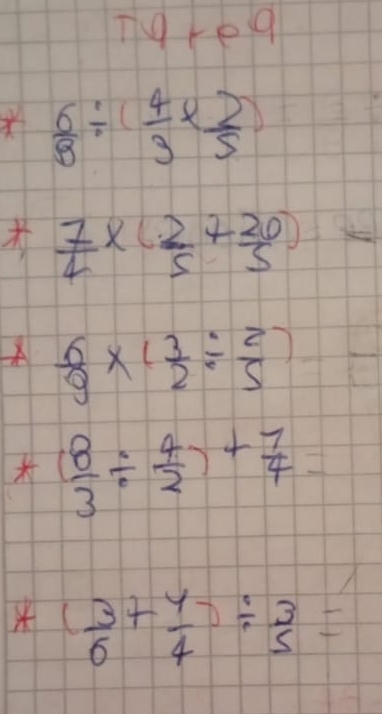 Tarea
* 6/8 ÷ (4/3 x 2/5) =
* 7/4 x (2/5 + 20/5) =
* 6/9 x (3/2 ÷ 2/5)
* (8/3 ÷ 4/2) + 7/4 =
* (3/6 + 4/4) ÷ 3/5 =